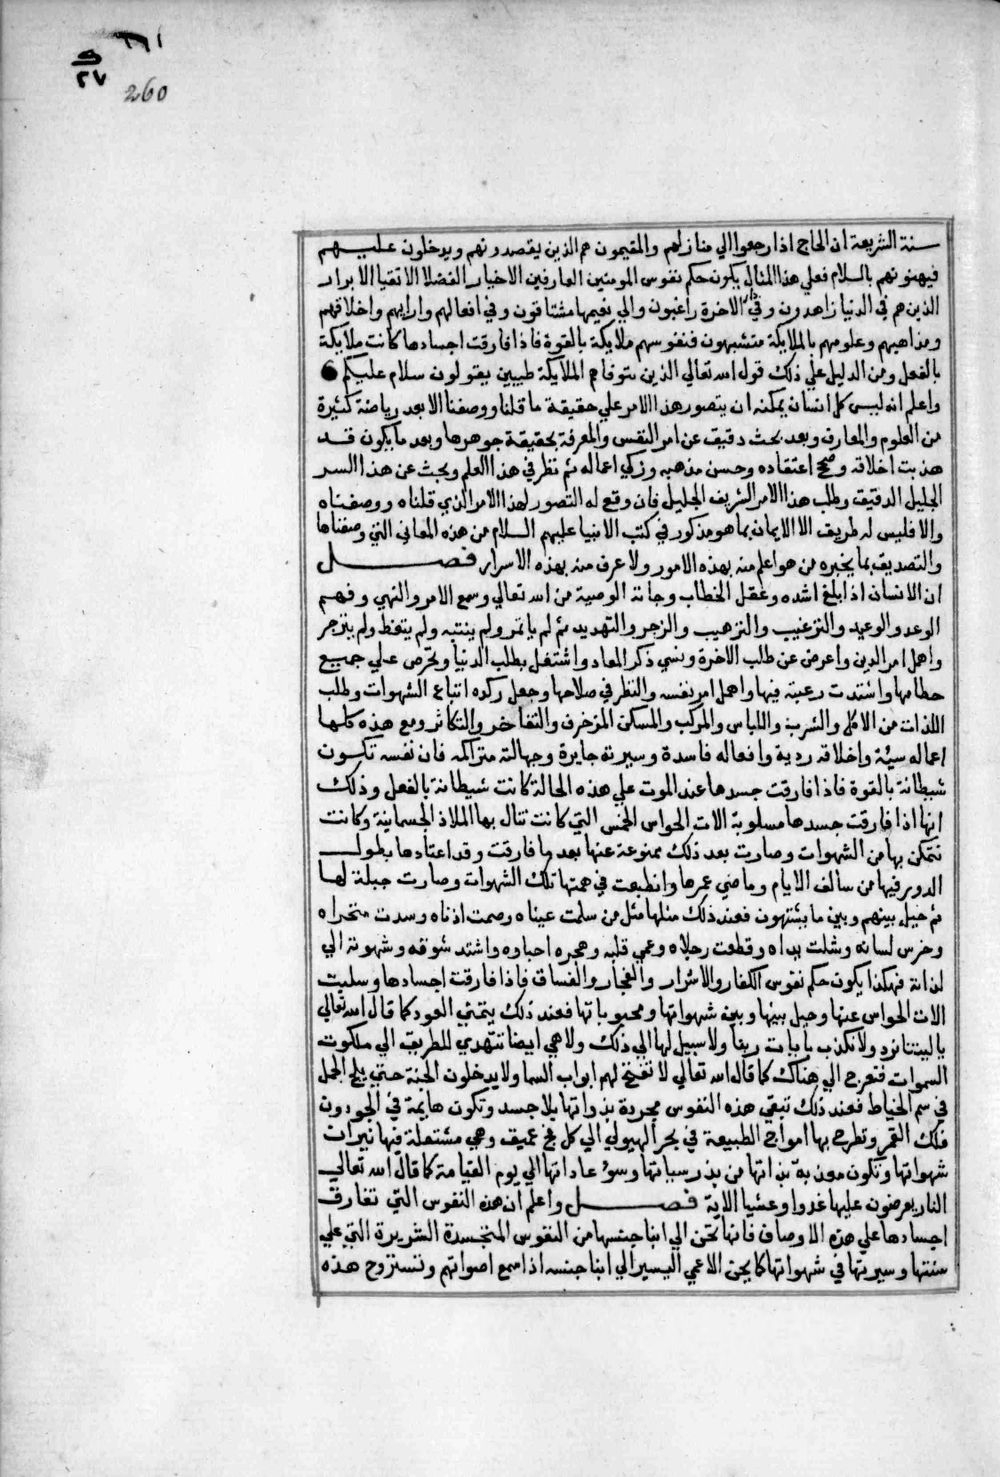 ٢٦١
و
٢٧
260
سنة الشريعة ان الحاج اذا رجعوا الي منازلهم والمقيمون هم الذين يقصدونهم ويدخلون عليهم
فيهنونهم بالسلام فعلي هذا المثال يكون حكم نفوس المومنين العارفين الاخيار الفضلا الاتقيا الابرار
الذين هم في الدنيا زاهدون وفي الاخرة راغبون والي نعيمها مشتاقون وفي افعالهم وارايهم واخلاقهم
ومذاهبهم وعلومهم بالملايكة متشبهون فنفوسهم ملايكة بالقوة فاذا فارقت اجسادها كانت ملايكة
بالفعل ومن الدليل علي ذلك قول الله تعالي الذين تتوفاهم الملايكة طيبين يقولون سلام عليكم
واعلم انه ليس كل انسان يمكنه ان يتصور هذا الامر علي حقيقة ما قلنا ووصفنا الا بعد رياضة كثيرة
من العلوم والمعارف وبعد بحث دقيق عن امر النفس والمعرفة بحقيقة جوهرها وبعد ما يكون قد
هذبت اخلاقه وصح اعتقاده وحسن مذهبه وزكي اعماله ثم نظر في هذا العلم وبحث عن هذا السر
الجليل الدقيق وطلب هذا الامر الشريف الجليل فان وقع له التصور لهذا الامر الذي قلناه ووصفناه
والا فليس له طريق الا الايمان بما هو مذكور في كتب الانبيا عليهم السلام من هذه المعاني التي وصفناها
والتصديق بما يخبره من هو اعلم منه بهذه الامور ولا عرف منه بهذه الاسرار فصل
ان الانسان اذا بلغ اشده وعقل الخطاب وجاته الوصية من الله تعالي وسمع الامر والنهي وفهم
الوعد والوعيد والترغيب والترهيب والزجر والتهديد ثم لم ياتمر ولم ينتبه ولم يتعظ ولم ينزجر
واهمل امر الدين واعرض عن طلب الاخرة ونسي ذكر المعاد واشتغل بطلب الدنيا وتحرص علي جميع
حطامها واشتدت رغبته فيها واهمل امر نفسه والنظر في صلاحها وجعل ركده اتباع الشهوات وطلب
اللذات من الاكل والشرب واللباس والمركب والمسكن المزخرف والتفاخر والتكاثر ومع هذه كلها
اعماله سيئة واخلاقه ردية وافعاله فاسدة وسيرته جايرة وجهالته متراكمه فان نفسه تكون
شيطانة بالقوة فاذا فارقت جسدها عند الموت علي هذه الحالة كانت شيطانة بالفعل وذلك
انها اذا فارقت جسدها مسلوبة الات الحواس الخمس التي كانت تنال بها الملاذ الجسمانية وكانت
تتمكن بها من الشهوات وصارت بعد ذلك ممنوعة عنها بعد ما فارقت وقد اعتادها بطول
الدور فيها من سالف الايام وماضي عمرها وانطبعت في همتها تلك الشهوات وصارت جبلة لها
ثم حيل بينهم وبين ما يشتهون فعند ذلك مثلها مثل من سلمت عيناه وصمت اذناه وسدت منخراه
وخرس لسانه وشلت يداه وقطعت رجلاه وعمي قلبه وهجره احباوه واشتد شوقه وشهوته الي
لذاته فهكذا يكون حكم نفوس الكفار والاشرار والفجار والفساق فاذا فارقت اجسادها وسلبت
الات الحواس عنها وحيل بينها وبين شهواتها ومحبوباتها فعند ذلك يتمني العود كما قال الله تعالي
يا ليتنا نرد ولا نكذب بايات ربنا ولا سبيل لها الي ذلك ولا هي ايضا تهتدي للطريق الي ملكوت
السموات فتعرج الي هناك كما قال الله تعالي لا تفتح لهم ابواب السما ولا يدخلون الجنة حتي يلج الجمل
في سم الخياط فعند ذلك تبقي هذه النفوس مجردة بذواتها بلا جسد وتكون هايمة في الجو دون
فلك القمر وتطرح بها امواج الطبيعة في بحر الهيولي الي كل فج عميق وهي مشتعلة فيها نيرات
شهواتها وتكون معذبة بذاتها من بذر سياتها وسو عاداتها الي يوم القيامة كما قال الله تعالي
النار يعرضون عليها غدوا وعشيا الاية فصل واعلم ان هذه النفوس التي تفارق
اجسادها علي هذه الاوصاف فانها تحن الي ابنا جنسها من النفوس المتجسدة الشريرة التي علي
سنتها وسيرتها في شهواتها كما يحن الاعمي اليسير الي ابنا جنسه اذا سمع اصواتهم وتستروح هذه